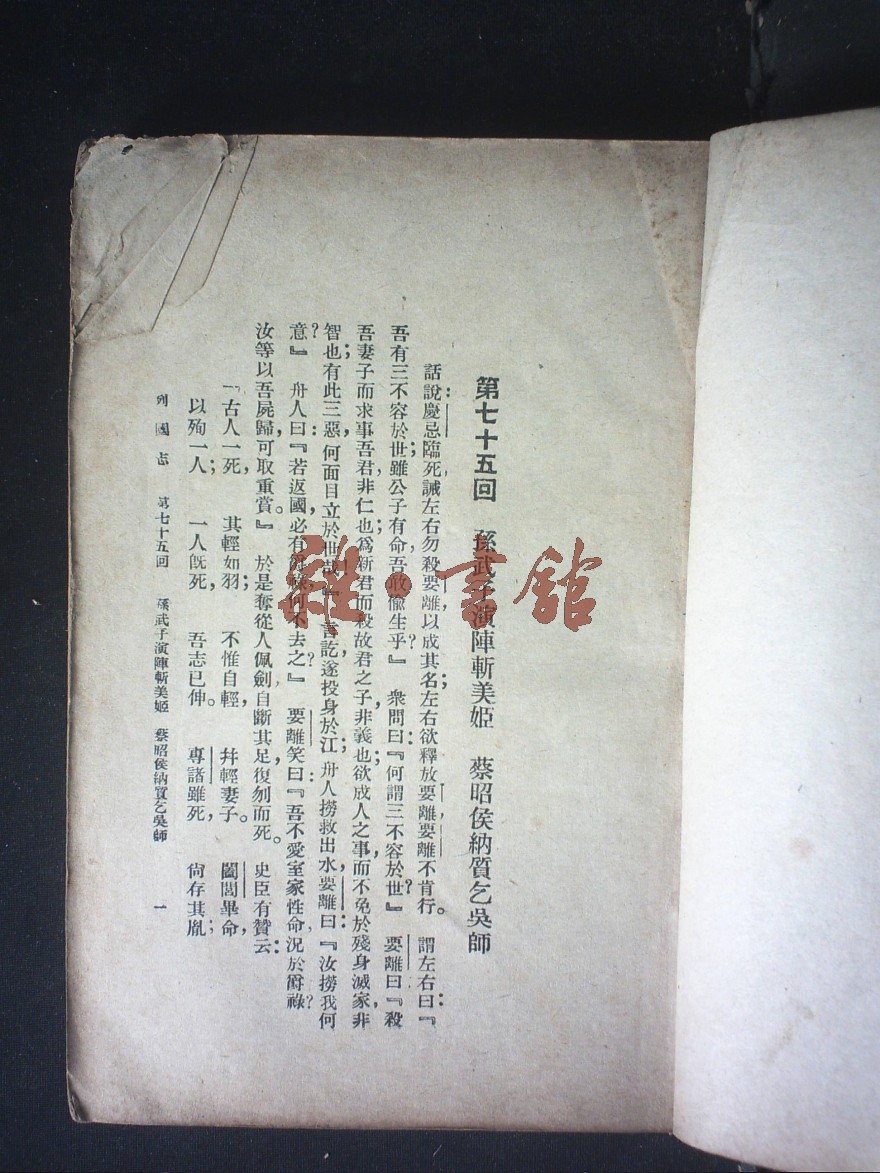 第七十五回　孫武子演陣斬美姬　蔡昭侯納質乞吳師
話說慶忌臨死，誡左右勿殺要離，以成其名；左右欲釋放要離，要離不肯行。謂左右曰：『
吾有三不容於世；雖公子有命，吾敢偸生乎？』衆問曰：『何謂三不容於世？』要離曰：『殺
吾妻子而求事吾君，非仁也；爲新君而殺故君之子，非義也；欲成人之事，而不免於殘身滅家，非
智也；有此三惡，何面目立於世哉！』言訖，遂投身於江；舟人撈救出水，要離曰：『汝撈我何
意？』舟人曰：『若返國，必有爵祿，何不去之？』要離笑曰：『吾不愛室家性命，況於爵祿？
汝等以吾屍歸，可取重賞。』於是奪從人佩劍，自斷其足，復刎而死。史臣有贊云：
「古人一死，其輕如羽；不惟自輕，幷輕妻子。闔閭畢命，
以殉一人；一人旣死，吾志已伸。專諸雖死，尙存其胤；
列國志　第七十五回　孫武子演陣斬美姬　蔡昭侯納質乞吳師　一
雜·書館